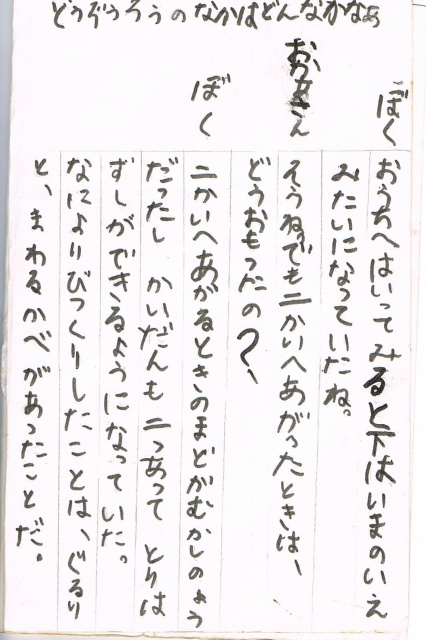 どうぞうろうのなかはどんなかなぁ
ぼく おうちへはいってみると下はいまのいえ
みたいになっていたね。
おかあさん そうね。でも二かいへあがったときは、
どうおもったの?、
ぼく 二かいへあがるときのまどがむかしのよう
だったし かいだんも二つあって とりは
ずしができるようになっていた。
なによりびっくりしたことは、ぐるり
と、まわるかべがあったことだ。